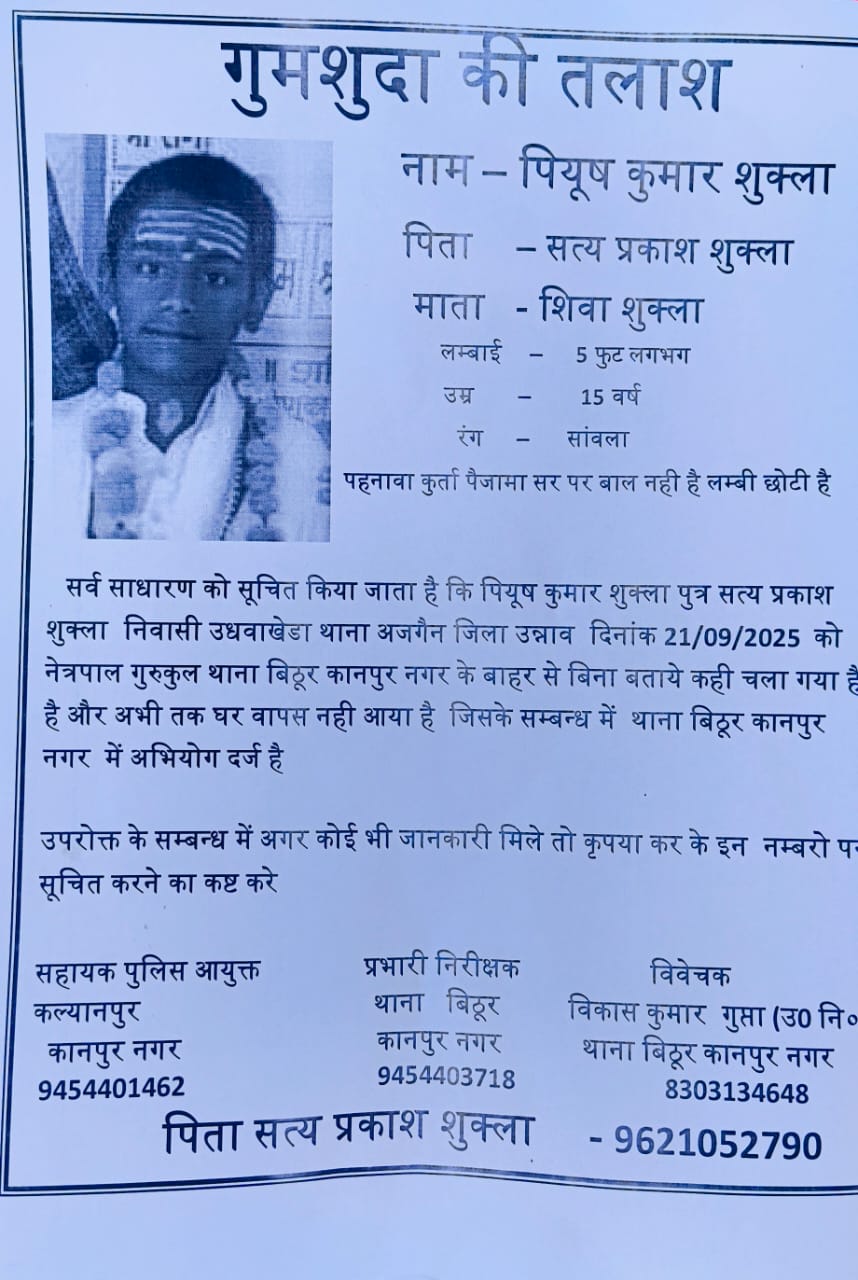 गुमशुदा की तलाश
नाम – पियूष कुमार शुक्ला
पिता – सत्य प्रकाश शुक्ला
माता - शिवा शुक्ला
लम्बाई – 5 फुट लगभग
उम्र – 15 वर्ष
रंग – सांवला
पहनावा कुर्ता पैजामा सर पर बाल नही है लम्बी छोटी है
सर्व साधारण को सूचित किया जाता है कि पियूष कुमार शुक्ला पुत्र सत्य प्रकाश
शुक्ला निवासी उधवाखेडा थाना अजगैन जिला उन्नाव दिनांक 21/09/2025 को
नेत्रपाल गुरुकुल थाना बिठूर कानपुर नगर के बाहर से बिना बताये कही चला गया है
है और अभी तक घर वापस नही आया है जिसके सम्बन्ध में थाना बिठूर कानपुर
नगर में अभियोग दर्ज है
उपरोक्त के सम्बन्ध में अगर कोई भी जानकारी मिले तो कृपया कर के इन नम्बरो
सूचित करने का कष्ट करे
सहायक पुलिस आयुक्त
कल्यानपुर
कानपुर नगर
9454401462
प्रभारी निरीक्षक
थाना बिठूर
कानपुर नगर
9454403718
विवेचक
विकास कुमार गुप्ता (उ0 नि०
थाना बिठूर कानपुर नगर
8303134648
पिता सत्य प्रकाश शुक्ला - 9621052790